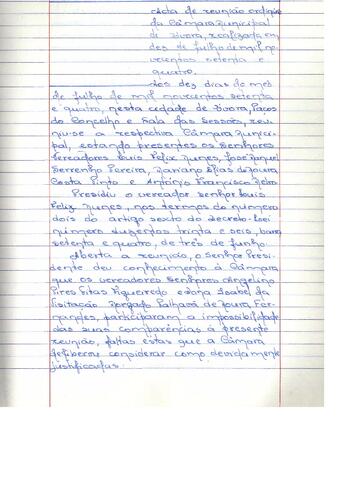 Acta da reunião ordinária
da Câmara Municipal
de Évora, realizada em
dez de julho de mil no-
vecentos setenta e
quatro.
Aos dez dias do mês
de julho de mil novecentos setenta
e quatro, nesta cidade de Évora, Paços
do Concelho e Sala das Sessões, reu-
niu-se a respectiva Câmara Munici-
pal, estando presentes os Senhores
Vereadores Luis Felix Nunes, José Manuel
Serrenho Pereira, Mariano Elias de Moura
Costa Pinto e António Francisco
Presidiu o vereador senhor Luis
Felix Nunes, nos termos do número
dois do artigo sexto do decreto-Lei
número duzentos trinta e seis, barra
setenta e quatro, de três de junho.
Aberta a reunião, o Senhor Presi-
dente deu conhecimento à Câmara
que os vereadores Senhores Angelino
Pires Vitas Figueiredo e Dona Isabel da
Visitação Morgado Palhavã de Moura Fer-
nandes, participaram a impossibilidade
das suas comparências à presente
reunião, faltas estas que a Câmara
deliberou considerar como devidamente
justificadas.